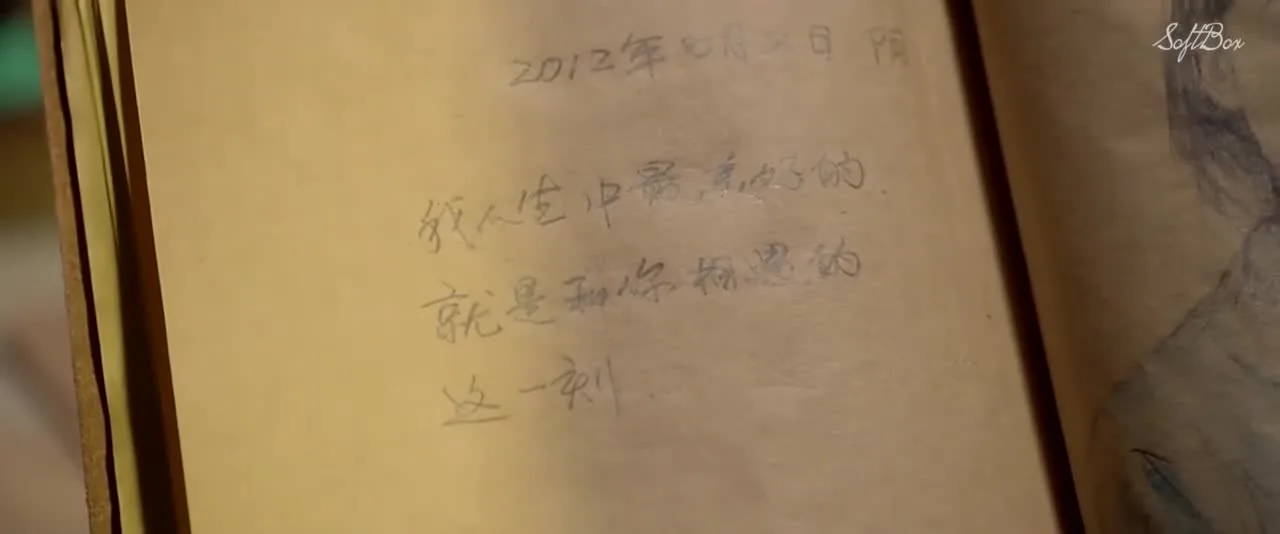 SoftBox
2012年 月 日 阴
我人生中最美好的.
就是和你相遇的
这一刻.